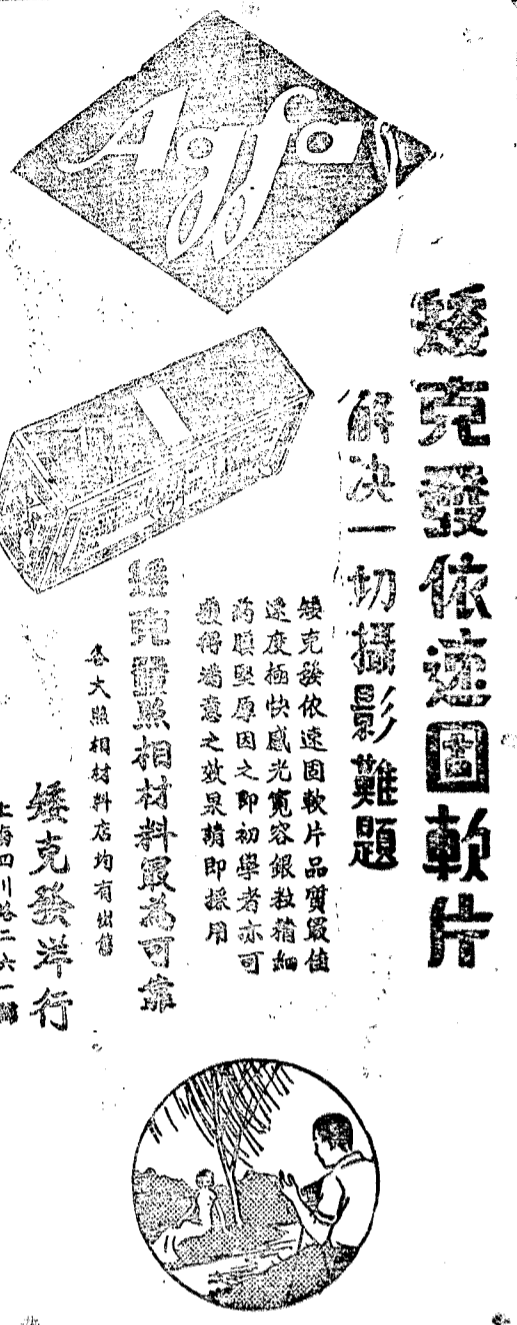 Agfa
矮克發依速固軟片
解决一切攝影難題
矮克發依速固軟片品質最佳
速度極快感光寬容銀粒精細
药膜堅厚因之即初學者亦可
獲得滿意之效果請即採用
矮克發照相材料最為可靠
各大照相材料店均有出售
矮克發洋行
上海四川路二六一號